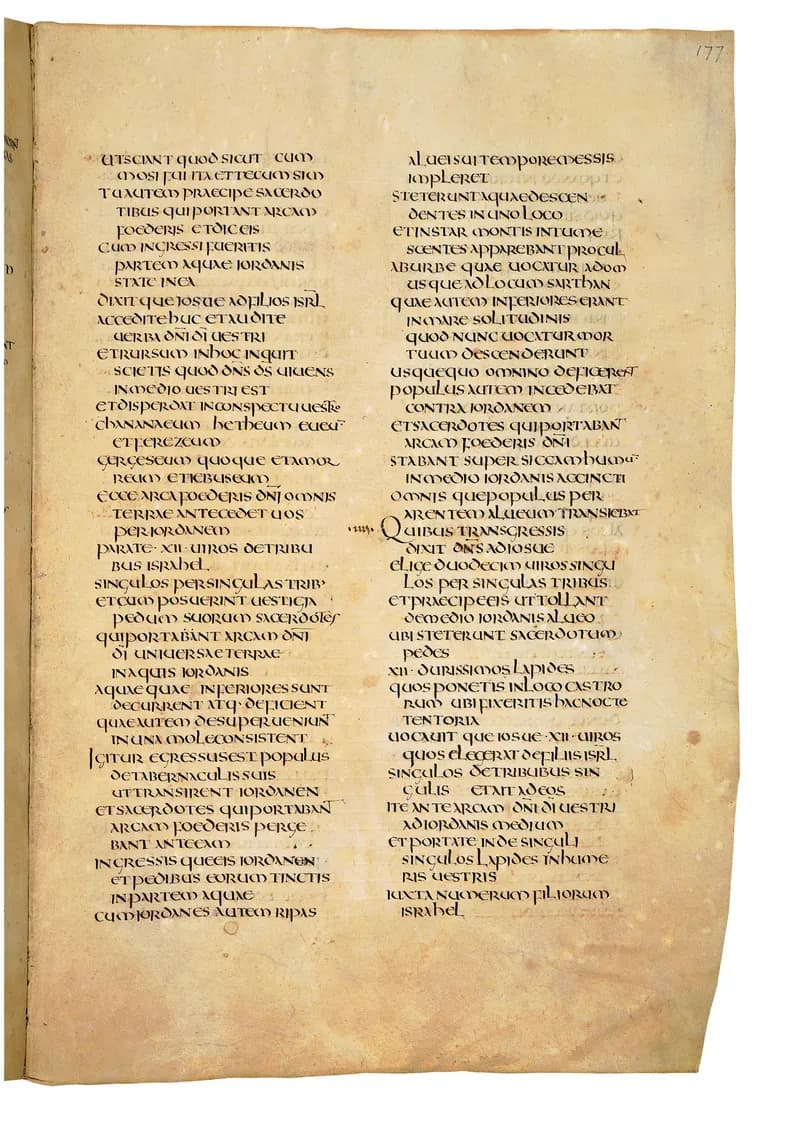 177
UT SCIANT QUOD SICUT CUM
MOSI FUI ITA ET TECUM SIM
TU AUTEM PRAECIPE SACERDO
TIBUS QUI PORTANT ARCAM
FOEDERIS ET DIC EIS
CUM INGRESSI FUERITIS
PARTEM AQUAE IORDANIS
STATE IN EA
DIXITQUE IOSUE AD FILIOS ISRL̅
ACCEDITE HUC ET AUDITE
UERBA DN̅I DI̅ UESTRI
ET RURSUM IN HOC INQUIT
SCIETIS QUOD DN̅S DS̅ UIUENS
IN MEDIO UESTRI EST
ET DISPERDAT IN CONSPECTU UESTRO
CHANANAEUM HETHEUM EUEU̅
ET FEREZEUM
GERGESEUM QUOQUE ET AMOR
REUM ET IEBUSEUM
ECCE ARCA FOEDERIS DN̅I OMNIS
TERRAE ANTECEDET UOS
PER IORDANEM
PARATE · XII · UIROS DE TRIBU
BUS ISRAHEL
SINGULOS PER SINGULAS TRIB·
ET CUM POSUERINT UESTIGIA
PEDUM SUORUM SACERDOTES
QUI PORTABANT ARCAM DN̅I
DI̅ UNIUERSAE TERRAE
IN AQUIS IORDANIS
AQUAE QUAE INFERIORES SUNT
DECURRENT ATQ· DEFICIENT
QUAE AUTEM DESUPER UENIUN̅T
IN UNA MOLE CONSISTENT
IGITUR EGRESSUS EST POPULUS
DE TABERNACULIS SUIS
UT TRANSIRENT IORDANEN
ET SACERDOTES QUI PORTABAN̅T
ARCAM FOEDERIS PERGE
BANT ANTE EAM
INGRESSISQUE EIS IORDANEN
ET PEDIBUS EORUM TINCTIS
IN PARTEM AQUAE
CUM IORDANES AUTEM RIPAS
ALUEI SUI TEMPORE MESSIS
IMPLERET
STETERUNT AQUAE DESCEN
DENTES IN UNO LOCO
ET INSTAR MONTIS INTUME
SCENTES APPAREBANT PROCUL
AB URBE QUAE UOCATUR ADOM
USQUE AD LOCUM SARTHAN
QUAE AUTEM INFERIORES ERANT
IN MARE SOLITUDINIS
QUOD NUNC UOCATUR MOR
TUUM DESCENDERUNT
USQUEQUO OMNINO DEFICERENT
POPULUS AUTEM INCEDEBAT
CONTRA IORDANEM
ET SACERDOTES QUI PORTABAN̅T
ARCAM FOEDERIS DN̅I
STABANT SUPER SICCAM HUMU̅
IN MEDIO IORDANIS ACCINCTI
OMNISQUE POPULUS PER
ARENTEM ALUEUM TRANSIEBAT
QUIBUS TRANSGRESSIS
DIXIT DN̅S AD IOSUE
ELIGE DUODECIM UIROS SINGU
LOS PER SINGULAS TRIBUS
ET PRAECIPE EIS UT TOLLANT
DE MEDIO IORDANIS ALUEO
UBI STETERUNT SACERDOTUM
PEDES
XII · DURISSIMOS LAPIDES
QUOS PONETIS IN LOCO CASTRO
RUM UBI FIXERITIS HAC NOCTE
TENTORIA
UOCAUITQUE IOSUE · XII · UIROS
QUOS ELEGERAT DE FILIIS ISRL̅
SINGULOS DE TRIBUBUS SIN
GULIS ET AIT AD EOS
ITE ANTE ARCAM DN̅I DI̅ UESTRI
AD IORDANIS MEDIUM
ET PORTATE INDE SINGULI
SINGULOS LAPIDES IN HUME
RIS UESTRIS
IUXTA NUMERUM FILIORUM
ISRAHEL